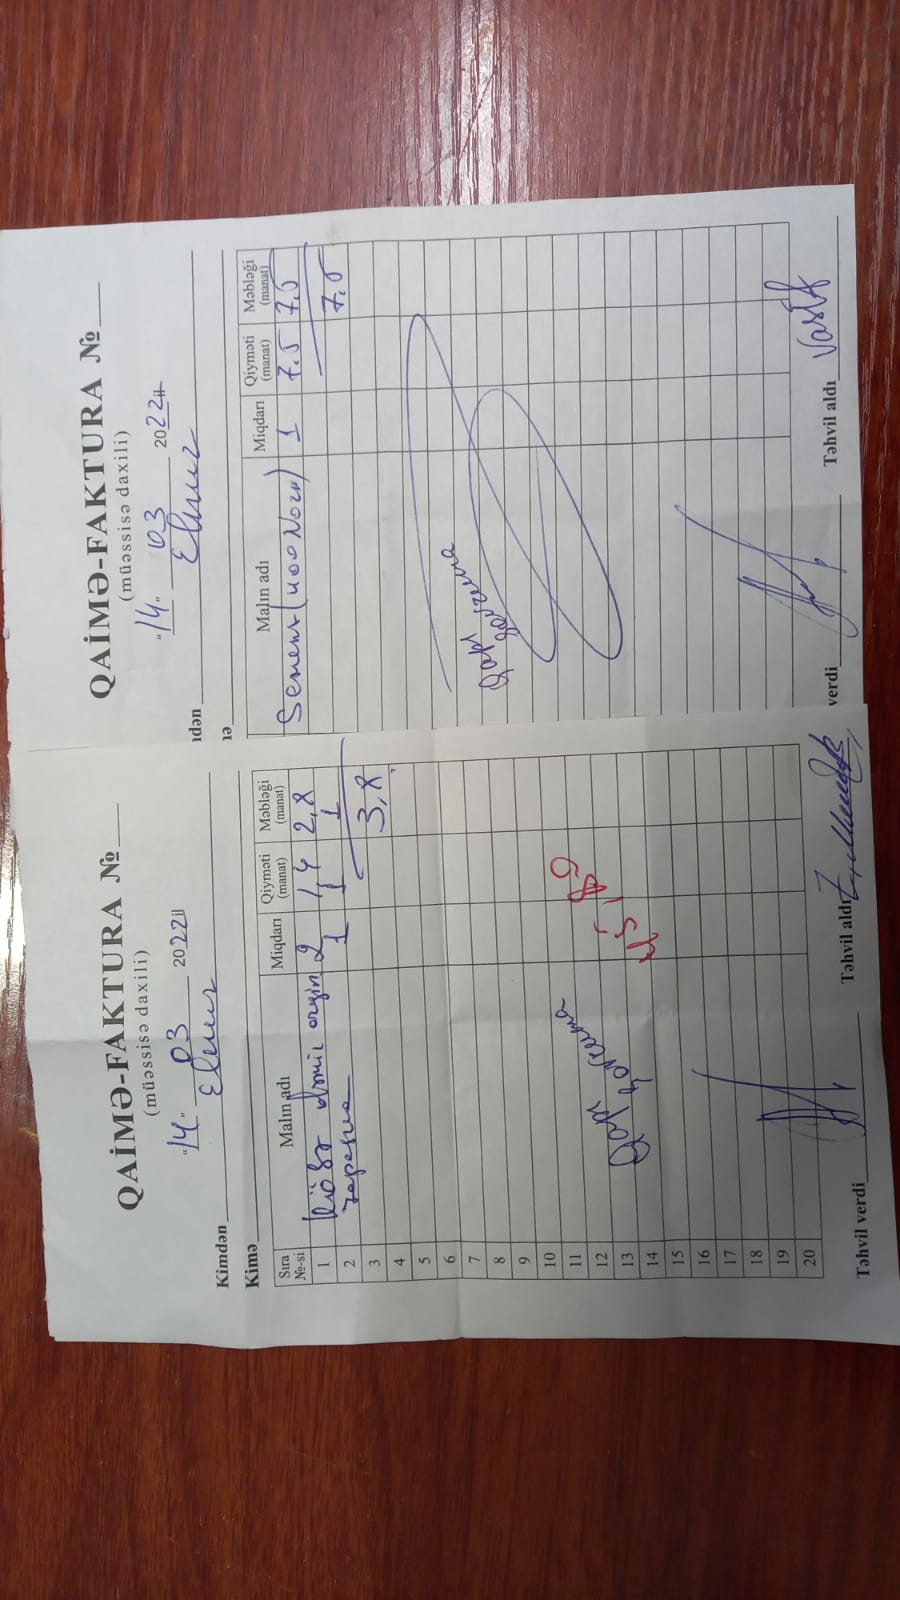 QAİMƏ-FAKTURA №
(müəssisə daxili)
"14" 03 2022il
Kimdən Elnur
Kimə
Sıra №-si Malın adı Miqdarı Qiyməti (manat) Məbləği (manat)
1 2 1,4 2,8
2 1 1 1
3 3,8
4
5
6
7
8
9
10
11
12
13
14
15
16
17
18
19
20
Təhvil verdi Təhvil aldı
QAİMƏ-FAKTURA №
(müəssisə daxili)
"14" 03 2022il
Elnur
Malın adı Miqdarı Qiyməti (manat) Məbləği (manat)
Sement (400 Nozn) 1 7.5 7.5
7.5
verdi Təhvil aldı Vasif